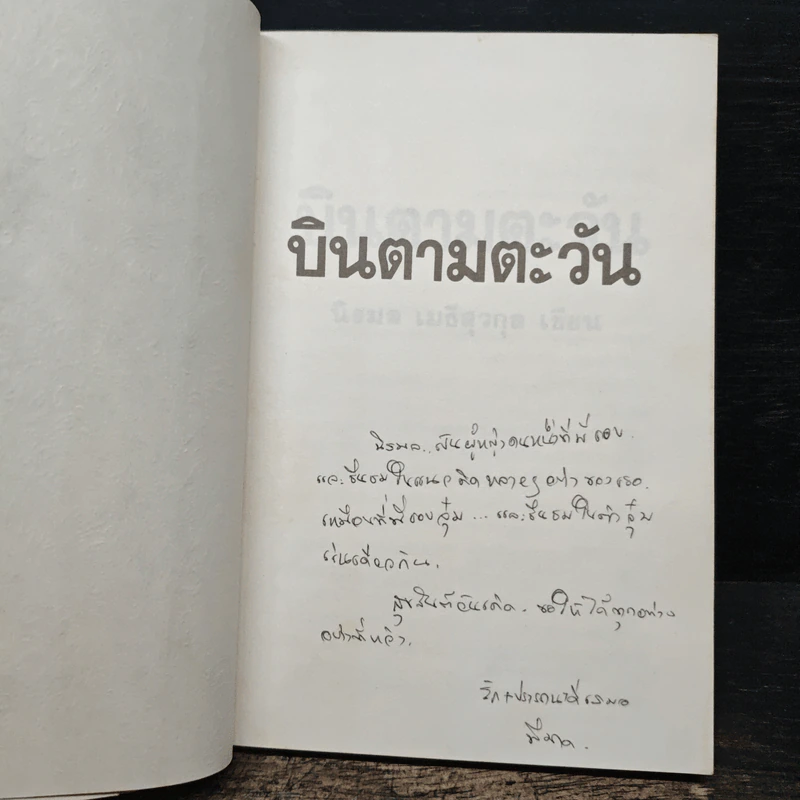 บินตามตะวัน
นิรมล เมธีสุวกุล เขียน
นิรมล.. เป็นผู้หญิงคนหนึ่งที่พี่ชอบ
และชื่นชมในแนวคิดหลายๆ อย่างของเธอ.
เหมือนที่พี่ชอบจุ๋ม ... และชื่นชมในตัวจุ๋ม
เช่นเดียวกัน.
สุขสันต์วันเกิด. ขอให้ได้ทุกอย่าง
อย่างที่หวัง.
รัก+ปรารถนาดีเสมอ